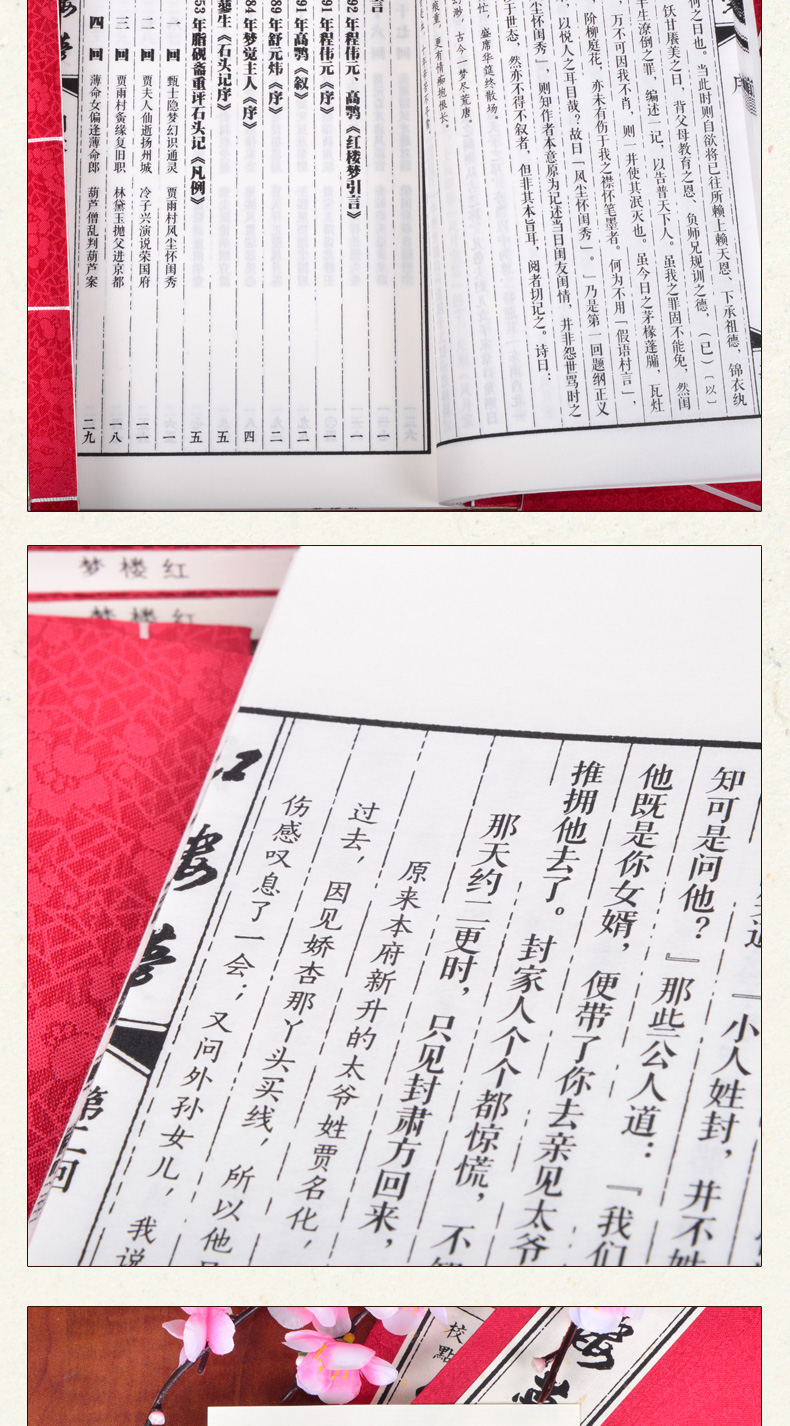 何之日也。当此时则自欲将已往所赖上赖天恩、下承祖德，锦衣纨
饫甘餍美之日，背父母教育之恩、负师兄规训之德，（已）〔以〕
半生潦倒之罪，编述一记，以告普天下人。虽我之罪固不能免，然闺
万不可因我不肖，则一并使其泯灭也。虽今日之茅椽蓬牖，瓦灶
阶柳庭花，亦未有伤于我之襟怀笔墨者。何为不用「假语村言」，
，以悦人之耳目哉？故曰「风尘怀闺秀」。」乃是第一回题纲正义
尘怀闺秀」，则知作者本意原为记述当日闺友闺情，并非怨世骂时之
于世态，然亦不得不叙者，但非其本旨耳，阅者切记之。诗日：
忙，盛席华筵终散场。
幻渺，古今一梦尽荒唐。
痕重，更有情痴抱恨长。
言 一
92 年程伟元、高鹗《红楼梦引言》 一
91 年程伟元《序》 一
91 年高鹗《叙》 二
89 年舒元炜《序》 二
84 年梦觉主人《序》 四
蓼生《石头记序》 五
53 年脂砚斋重评石头记《凡例》 五
一 回 甄士隐梦幻识通灵 贾雨村风尘怀闺秀 一
二 回 贾夫人仙逝扬州城 冷子兴演说荣国府 一一
三 回 贾雨村夤缘复旧职 林黛玉抛父进京都 一八
四 回 薄命女偏逢薄命郎 葫芦僧乱判葫芦案 二九
红楼梦
红楼梦
『小人姓封，并不姓
知可是问他？』那些公人道：『我们
他既是你女婿，便带了你去亲见太爷
推拥他去了。封家人个个都惊慌，不
那天约二更时，只见封肃方回来，
原来本府新升的太爷姓贾名化，
过去，因见娇杏那丫头买线，所以他
伤感叹息了一会；又问外孙女儿，我说
红楼梦
第二回
校點
楼梦